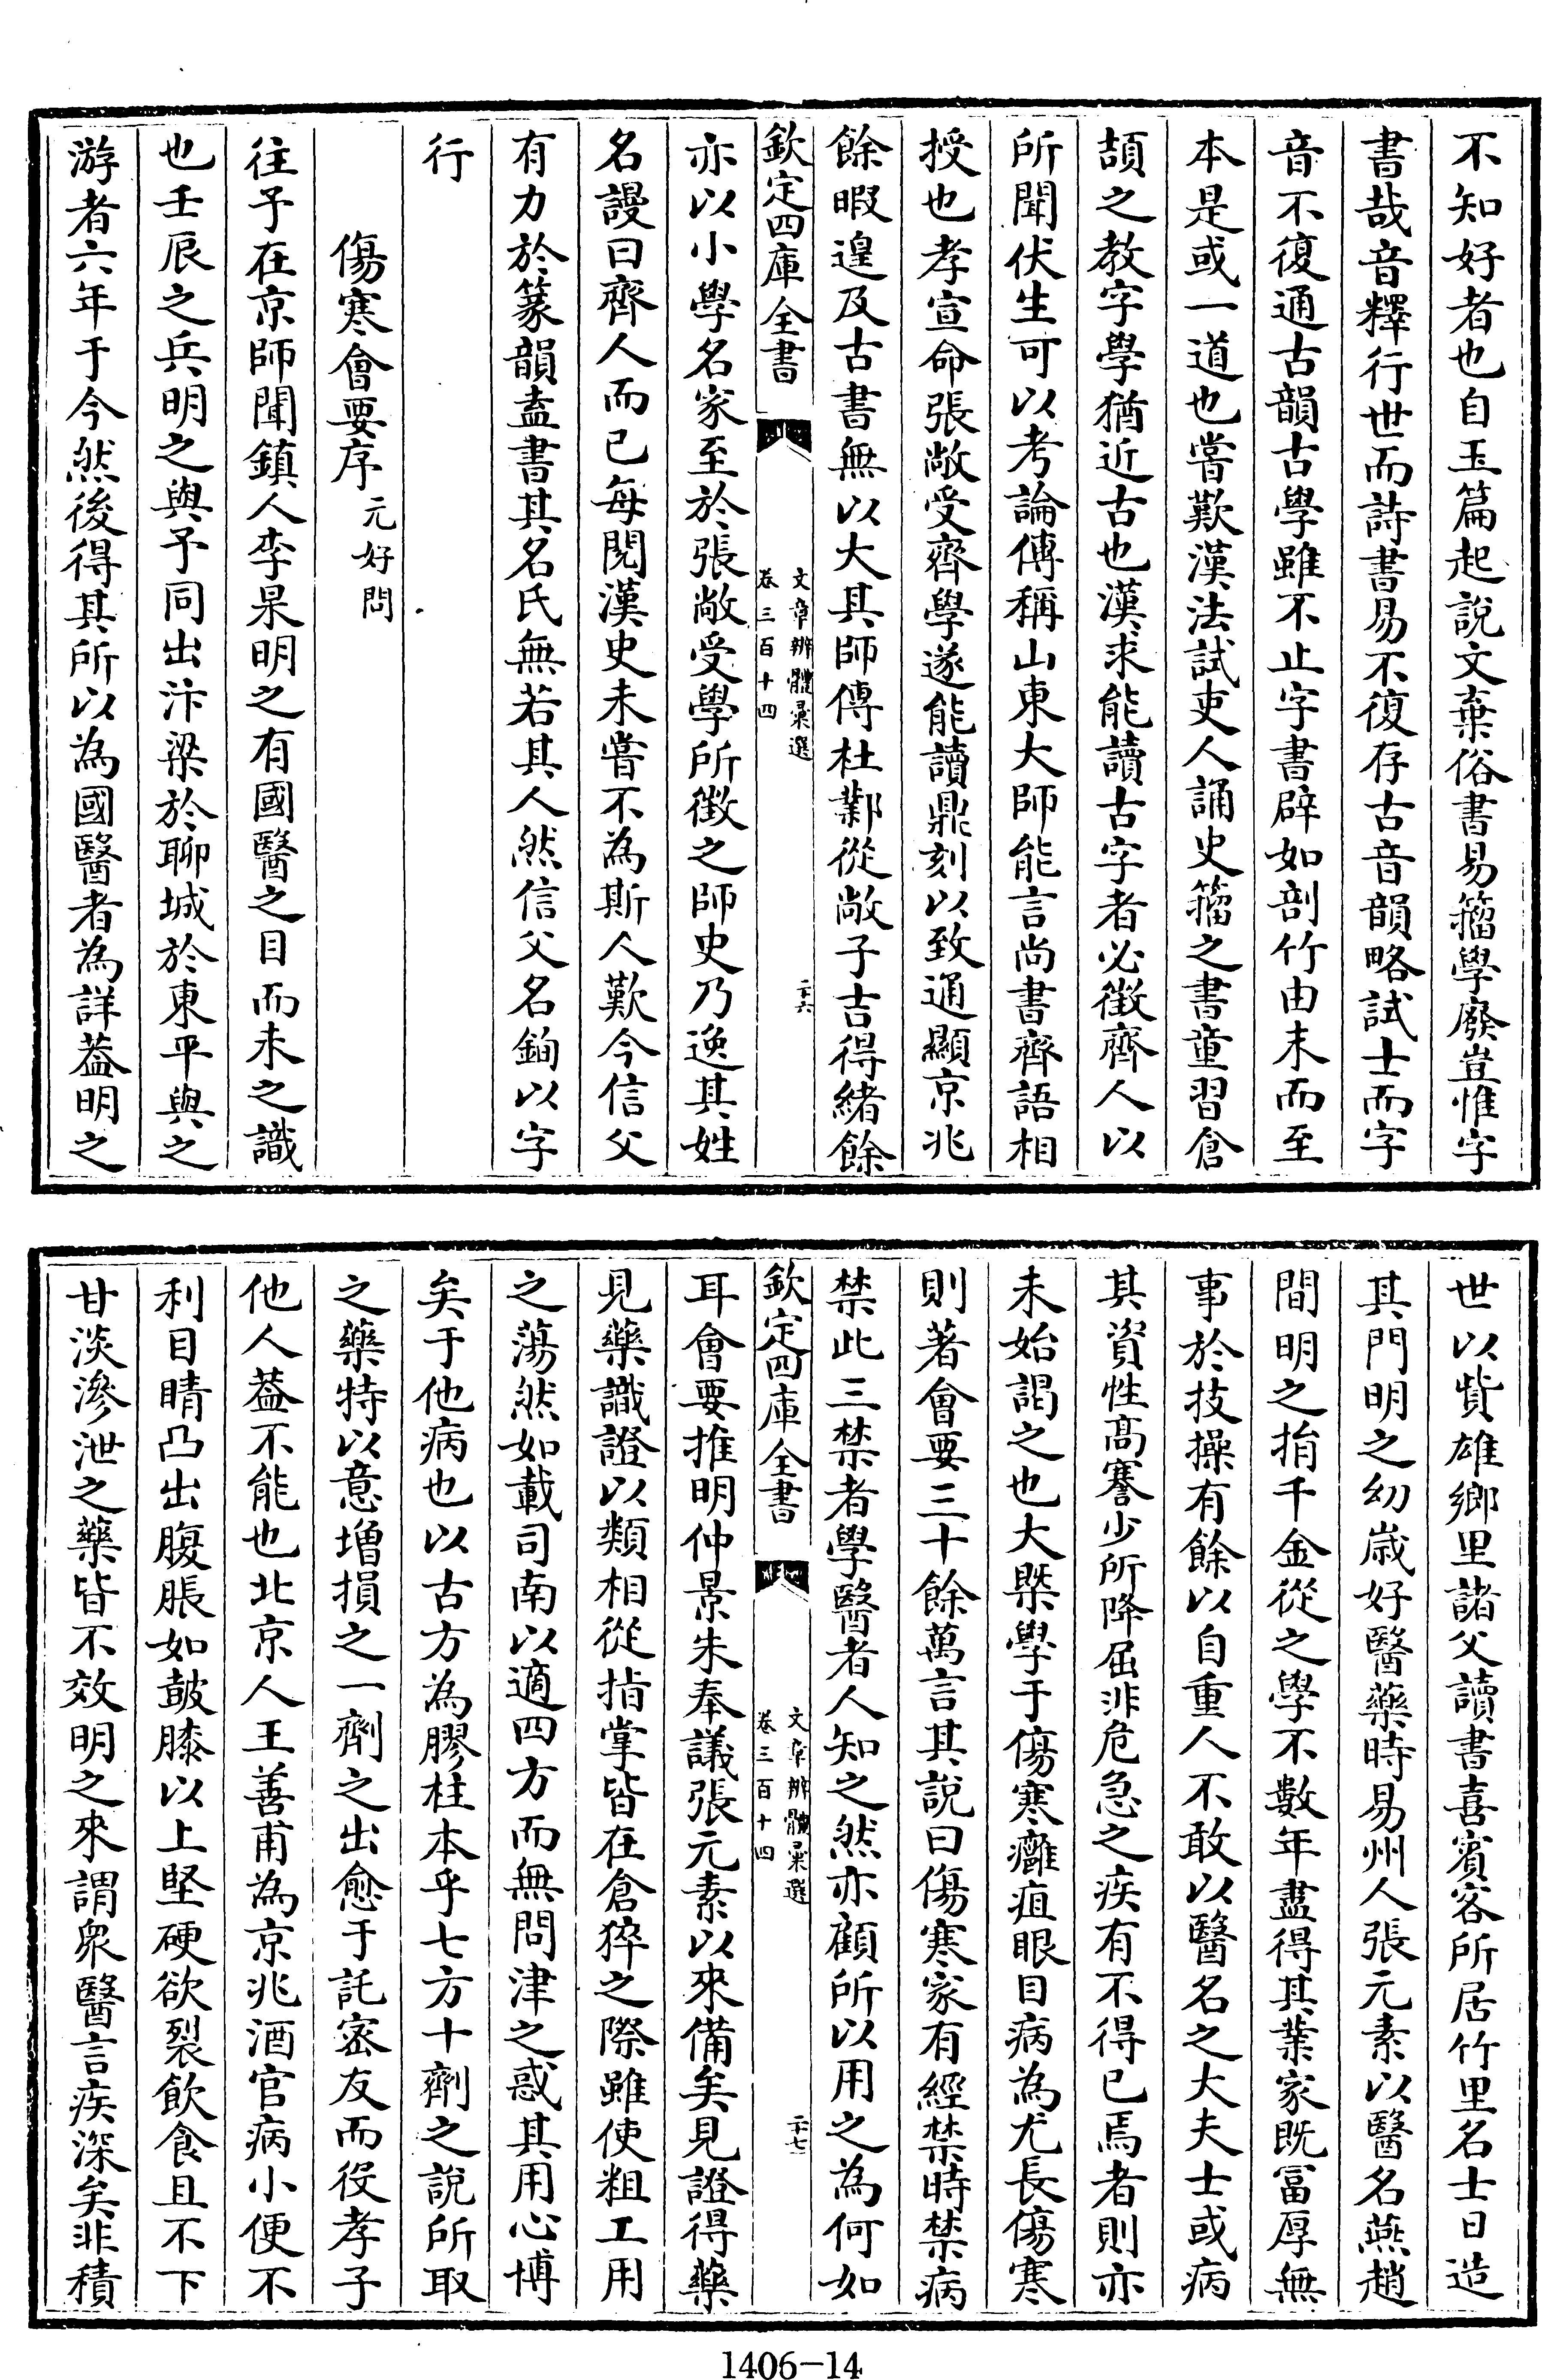 不知好者也自玉篇起說文棄俗書易籀學廢豈惟字
書哉音釋行世而詩書易不復存古音韻略試士而字
音不復通古韻古學雖不止字書辟如剖竹由末而至
本是或一道也嘗歎漢法試吏人誦史籀之書童習倉
頡之教字學猶近古也漢求能讀古字者必徵齊人以
所聞伏生可以考論傳稱山東大師能言尚書齊語相
授也孝宣命張敞受齊學遂能讀鼎刻以致通顯京兆
餘暇遑及古書無以大其師傳杜鄴從敞子吉得緒餘
欽定四庫全書
文章辨體彙選
卷三百十四
二十六
亦以小學名家至於張敞受學所徵之師史乃逸其姓
名謾曰齊人而已每閱漢史未嘗不為斯人歎今信父
有力於篆韻盍書其名氏無若其人然信父名鉤以字
行
傷寒會要序 元好問
往予在京師聞鎮人李杲明之有國醫之目而未之識
也壬辰之兵明之與予同出汴梁於聊城於東平與之
游者六年于今然後得其所以為國醫者為詳葢明之
世以貲雄鄉里諸父讀書喜賓客所居竹里名士日造
其門明之幼嵗好醫藥時易州人張元素以醫名燕趙
間明之捐千金從之學不數年盡得其業家既富厚無
事於技操有餘以自重人不敢以醫名之大夫士或病
其資性高謇少所降屈非危急之疾有不得已焉者則亦
未始謁之也大槩學于傷寒癰疽眼目病為尤長傷寒
則著會要三十餘萬言其說曰傷寒家有經禁時禁病
禁此三禁者學醫者人知之然亦顧所以用之為何如
欽定四庫全書
文章辨體彙選
卷三百十四
二十七
耳會要推明仲景朱奉議張元素以來備矣見證得藥
見藥識證以類相從指掌皆在倉猝之際雖使粗工用
之蕩然如載司南以適四方而無問津之惑其用心博
矣于他病也以古方為膠柱本乎七方十劑之說所取
之藥特以意增損之一劑之出愈于託密友而役孝子
他人葢不能也北京人王善甫為京兆酒官病小便不
利目睛凸出腹脹如鼓膝以上堅硬欲裂飲食且不下
甘淡滲泄之藥皆不效明之來謂衆醫言疾深矣非積
1406-14